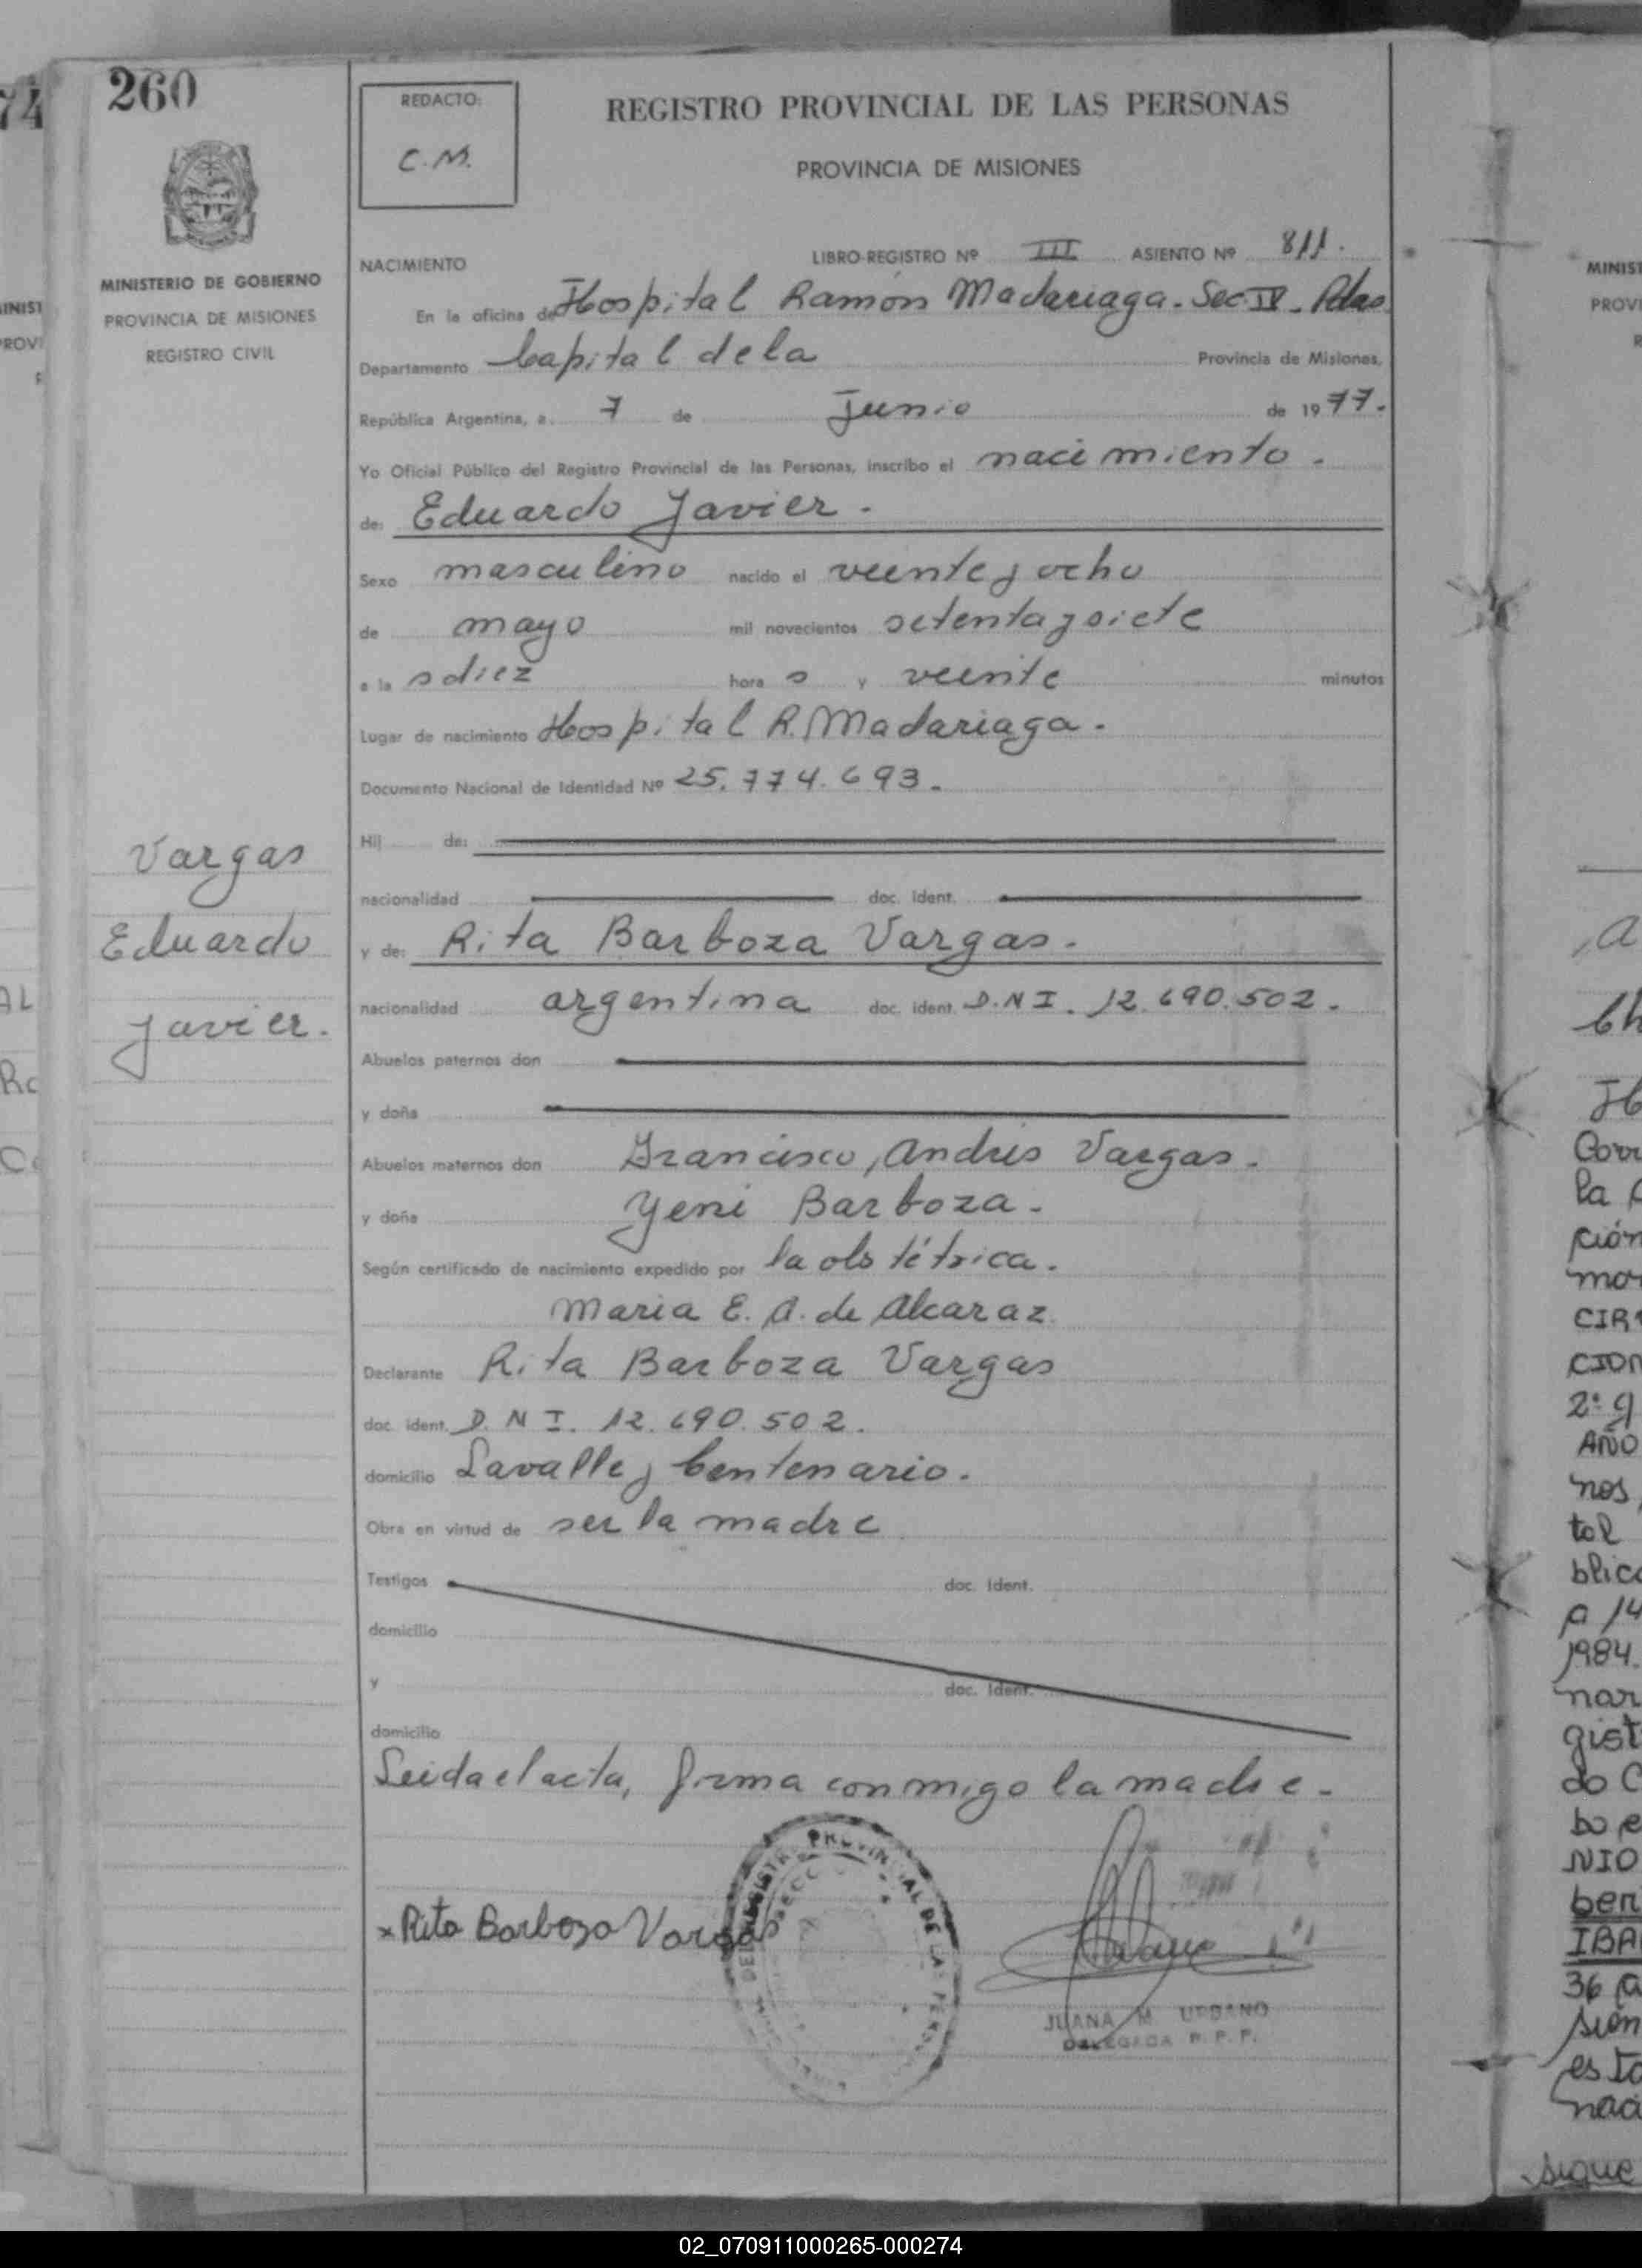 74
260
REDACTO:
C. M.
REGISTRO PROVINCIAL DE LAS PERSONAS
PROVINCIA DE MISIONES
MINISTERIO DE GOBIERNO
PROVINCIA DE MISIONES
REGISTRO CIVIL
NACIMIENTO
LIBRO-REGISTRO Nº III ASIENTO Nº 811.
En la oficina de Hospital Ramón Madariaga. Sec IV. Pdas
Departamento Capital de la Provincia de Misiones,
República Argentina, a 7 de Junio de 1977.
Yo Oficial Público del Registro Provincial de las Personas, inscribo el nacimiento.
de: Eduardo Javier.
Sexo masculino nacido el veinte y ocho
de mayo mil novecientos setenta y siete
a la s diez hora s y veinte minutos
Lugar de nacimiento Hospital R. Madariaga.
Documento Nacional de Identidad Nº 25.774.693.
Hij de:
nacionalidad doc. ident.
y de: Rita Barboza Vargas.
nacionalidad argentina doc. ident. D.N I. 12.690.502.
Abuelos paternos don
y doña
Abuelos maternos don Francisco, Andrés Vargas.
y doña Yeni Barboza.
Según certificado de nacimiento expedido por la obstétrica.
Maria E. A. de Alcaraz.
Declarante Rita Barboza Vargas
doc. ident. D. N I. 12.690.502.
domicilio Lavalle y Centenario.
Obra en virtud de ser la madre
Testigos doc. Ident.
domicilio
y doc. Ident.
domicilio
Leida el acta, firma conmigo la madre.
Vargas
Eduardo
Javier.
x Rita Barboza Vargas
JUANA M. URBANO
DELEGADA R. P. P.
02_070911000265-000274